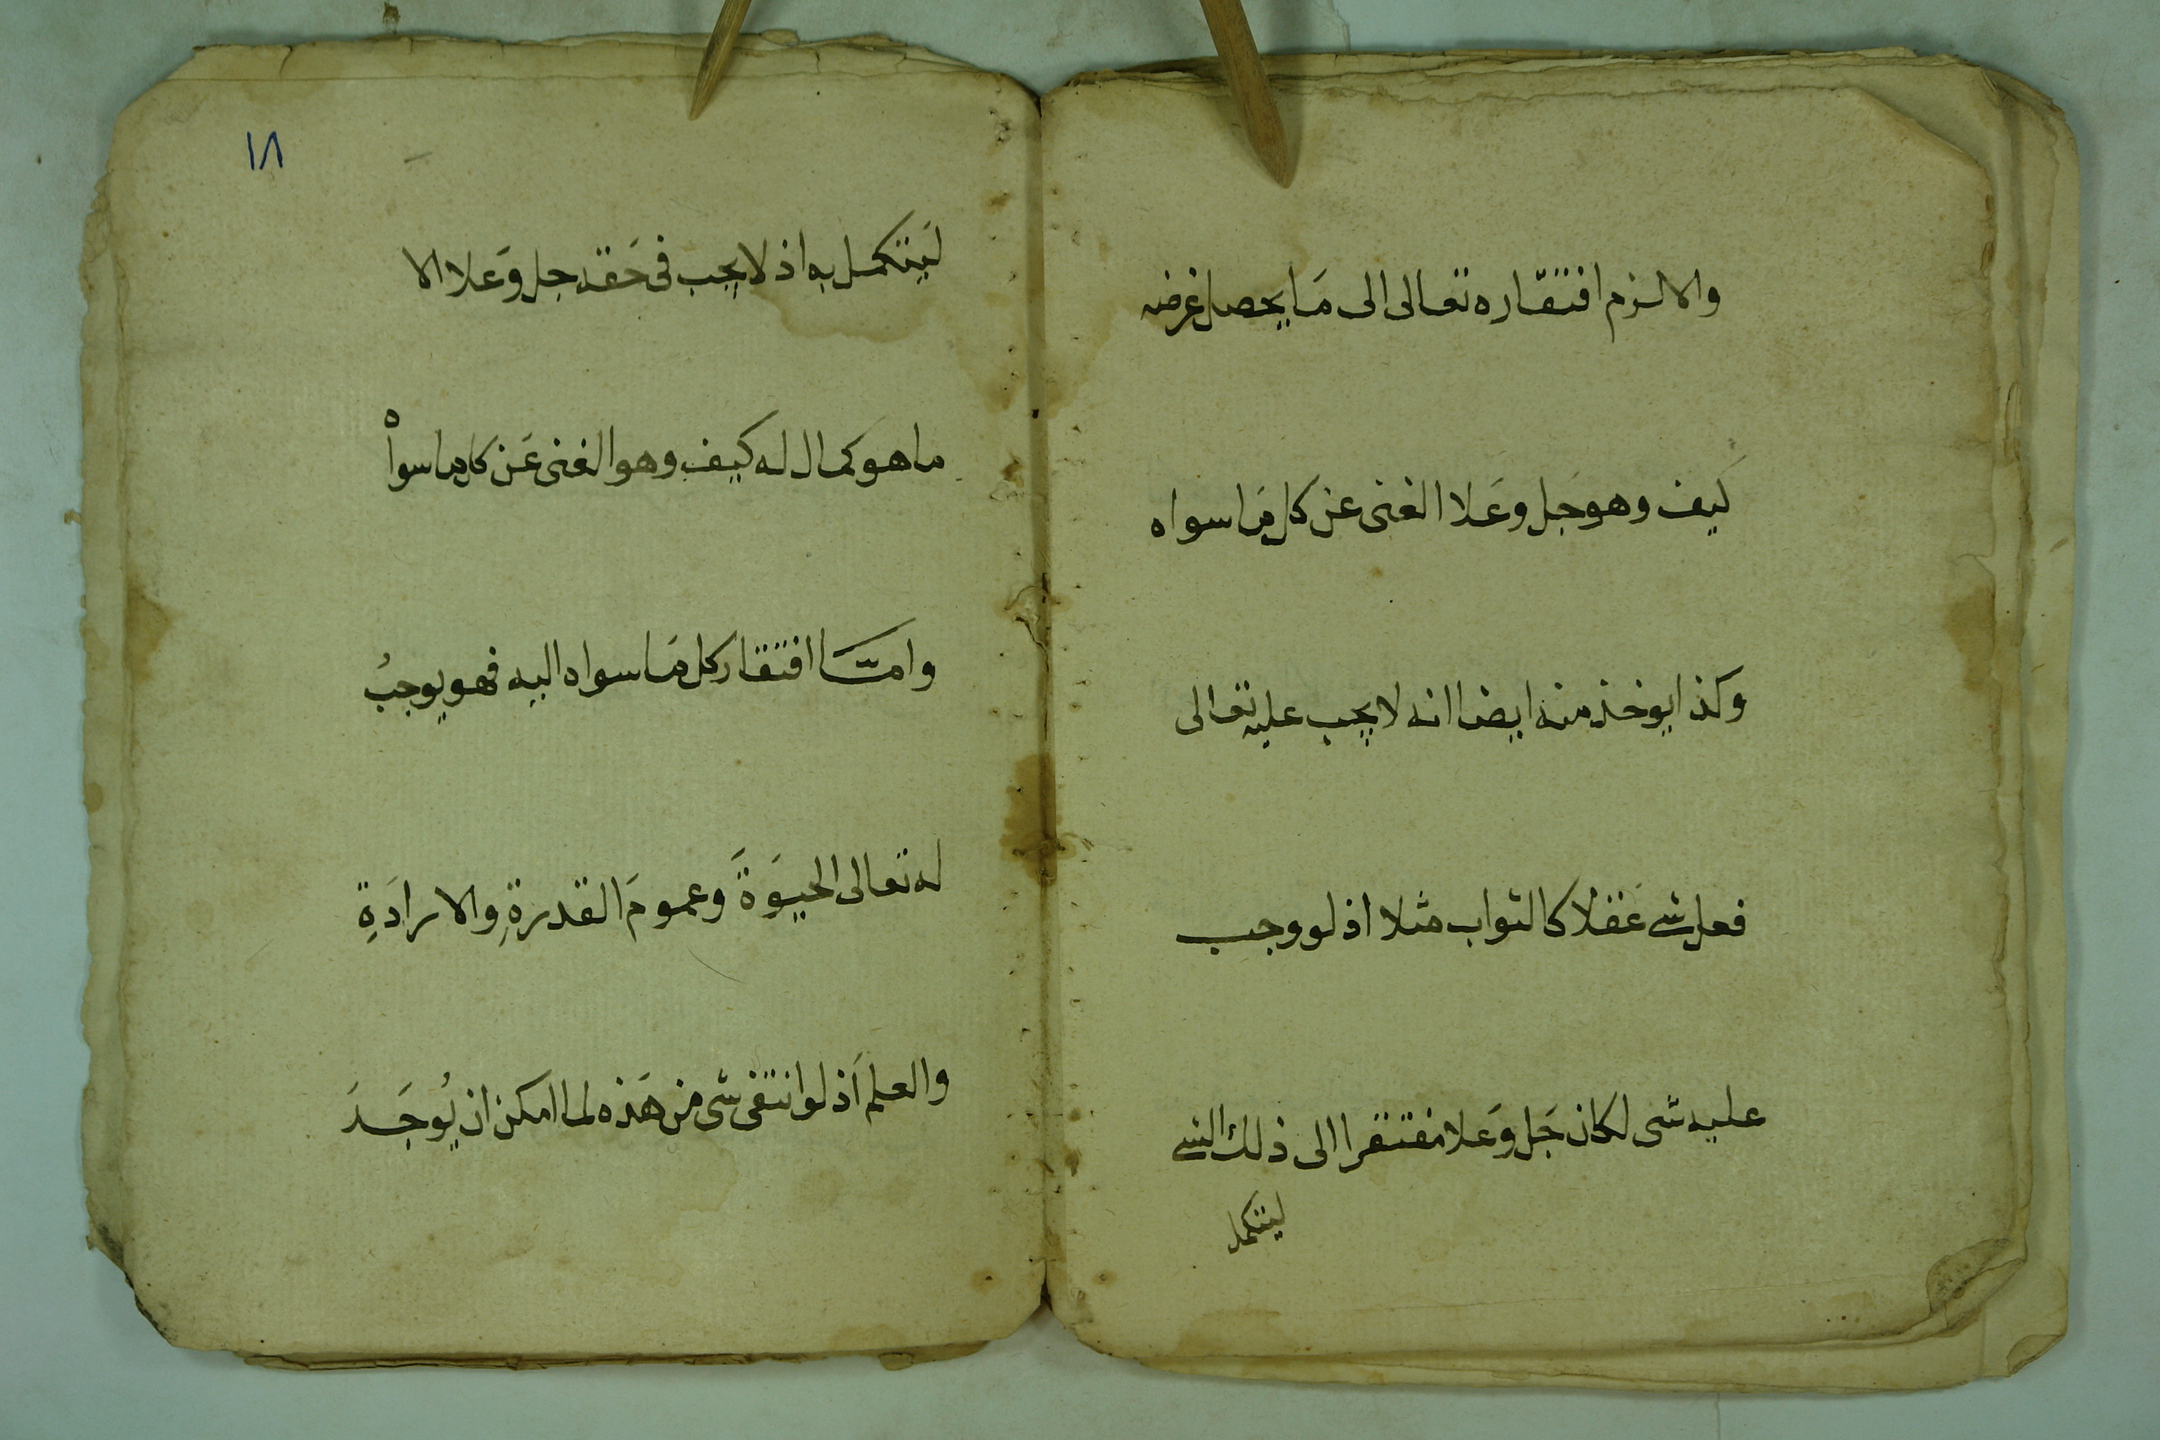 والا لزم افتقاره تعالى الى مَا يحصل غرضه
كيف وهو جَل وعَلا الغنى عن كل مَا سواه
وكذا يوخذ منه ايضا انه لا يجب عليه تعالى
فعل شے عَقلا كالثواب مثلا اذ لو وجب
عليه شى لكان جَل وَعَلا مفتقرا الى ذلك الشے
ليتكمل
لَيتكمل به اذ لا يجب فى حَقه جل وَعَلا الا
ما هو كمال له كيف وهو الغنى عَن كل ما سواه
وامّا افتقار كل مَا سواه اليه فهو يوجبُ
له تعالى الحيوَةَ وعمومَ القدرةِ والارادَةِ
والعلم اَذ لو انتفى شى من هَذه لما امكن ان يُوجَدَ
١٨